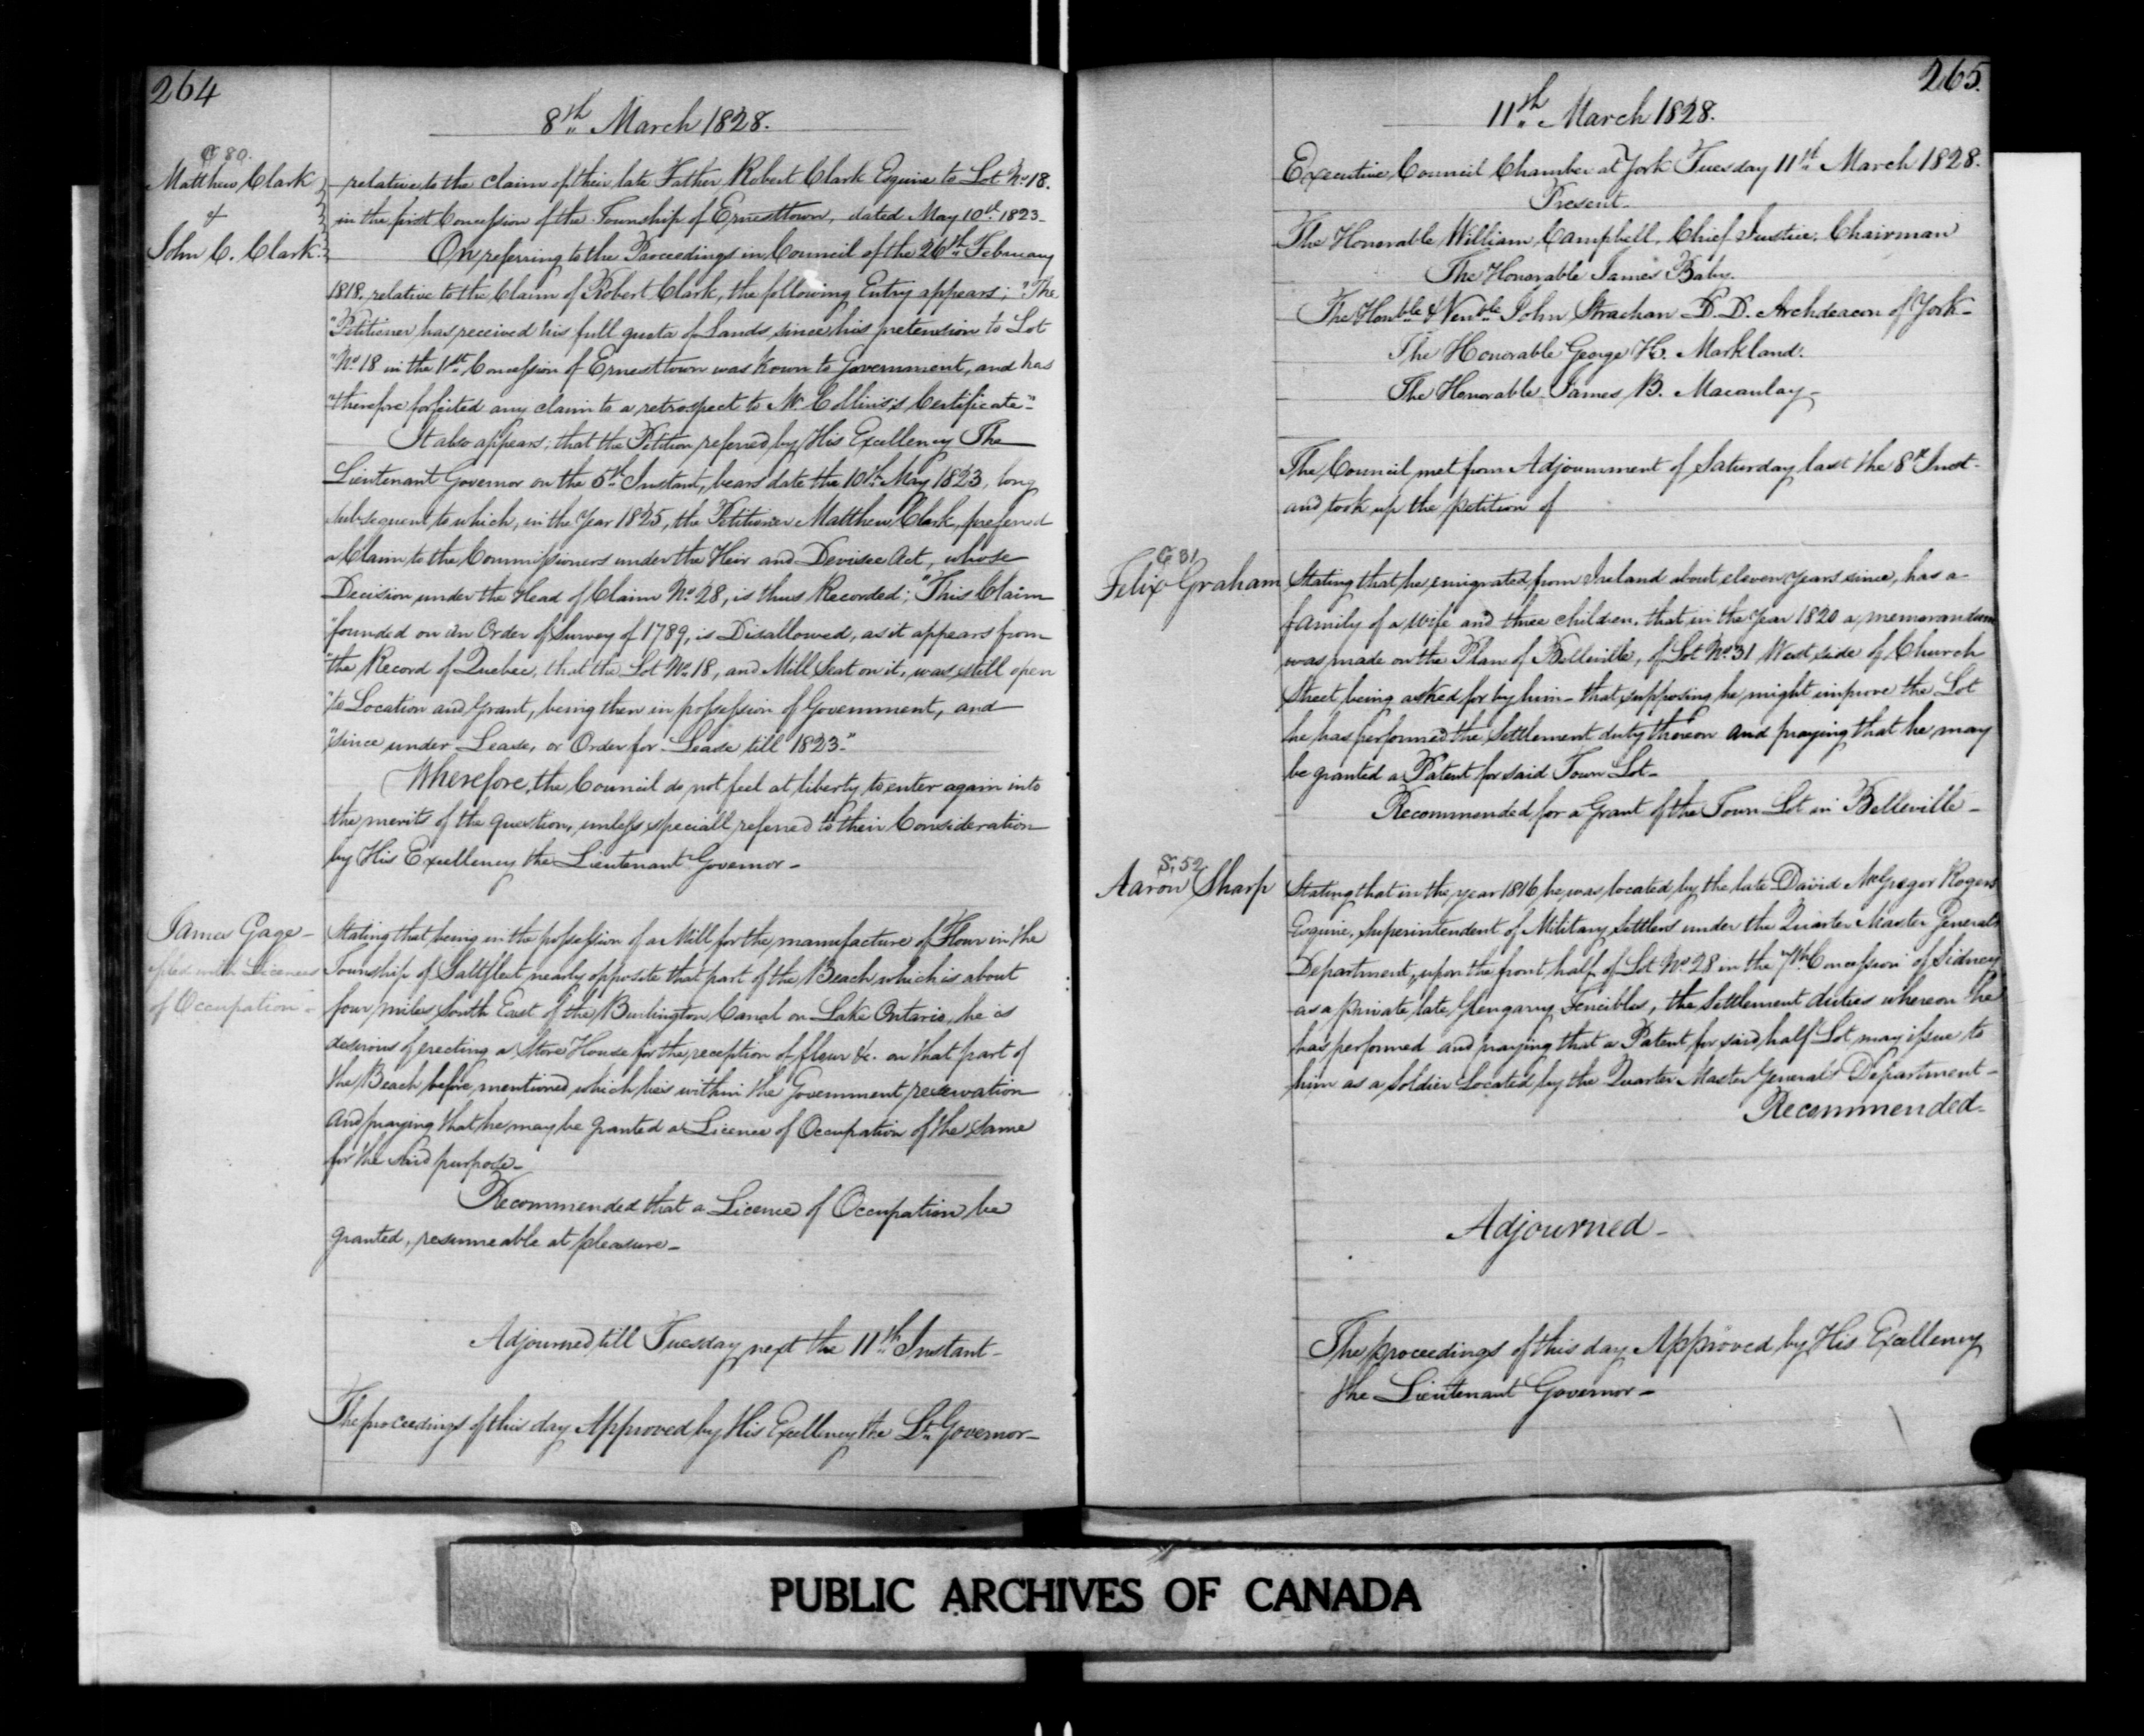 264
8th March 1828.
C 80.
Matthew Clark
&
John C. Clark
relative to the claim of their late Father Robert Clark Esquire to Lot No 18.
in the first Concession of the Township of Ernesttown, dated May 10th 1823-
On referring to the Proceedings in Council of the 26th February
1818. relative to the Claim of Robert Clark, the following Entry appears; "The
"Petitioner has received his full quota of Lands since his pretension to Lot
"No 18 in the 1st Concession of Ernesttown was known to Government, and has
"therefore forfeited any claim to a retrospect to Mr Collins's Certificate-"
It also appears, that the Petition referred by His Excellency The
Lieutenant Governor on the 5th Instant, bears date the 10th May 1823, long
subsequent to which, in the Year 1825, the Petitioner Matthew Clark, preferred
a Claim to the Commissioners under the Heir and Devisee Act, whose
Decision under the Head of Claim No 28, is thus Recorded; "This Claim
"founded on an Order of Survey of 1789, is Disallowed, as it appears from
"the Record of Quebec, that the Lot No 18, and Mill Seat on it, was still open
"to Location and Grant, being then in possession of Government, and
"since under Lease, or Order for Lease till 1823."
Wherefore, the Council do not feel at liberty to enter again into
the merits of the question, unless speciall referred to their Consideration
by His Excellency the Lieutenant Governor-
James Gage-
with Licences
of Occupation-
Stating that being in the possession of a Mill for the manufacture of Flour in the
Township of Saltfleet nearly opposite that part of the Beach which is about
four miles South East of the Burlington Canal on Lake Ontario, he is
desirous of erecting a Store House for the reception of flour &c. on that part of
the Beach before mentioned which lies within the Government reservation
and praying that he may be granted a Licence of Occupation of the same
for the said purpose-
Recommended that a Licence of Occupation be
granted, resumeable at pleasure-
Adjourned till Tuesday next the 11th Instant-
The proceedings of this day Approved by His Excellency the Lt. Governor-
265.
11th March 1828.
Executive Council Chamber at York Tuesday 11th March 1828.
Present-
The Honorable William Campbell, Chief Justice, Chairman
The Honorable James Baby.
The Honble & Venble John Strachan D.D. Archdeacon of York-
The Honorable George H. Markland.
The Honorable James B. Macaulay-
The Council met from Adjournment of Saturday last the 8th Inst-
and took up the petition of
G 31
Felix Graham
Stating that he emigrated from Ireland about eleven years since, has a
family of a wife and three children. that in the Year 1820 a memorandum
was made on the Plan of Belleville, of Lot No 31 West side of Church
Street being asked for by him- that supposing he might improve the Lot
he has performed the Settlement duty thereon and praying that he may
be granted a Patent for said Town Lot-
Recommended for a Grant of the Town Lot in Belleville-
S, 52
Aaron Sharp
Stating that in the year 1816 he was located by the late David McGregor Rogers
Esquire, Superintendent of Military Settlers under the Quarter Master General's
Department, upon the front half of Lot No 28 in the 7th Concession of Sidney
as a private late Glengarry Fencibles, the Settlement duties whereon he
has performed and praying that a Patent for said half Lot may issue to
him as a Soldier Located by the Quarter Master General's Department-
Recommended-
Adjourned-
The proceedings of this day Approved by His Excellency
the Lieutenant Governor-
PUBLIC ARCHIVES OF CANADA